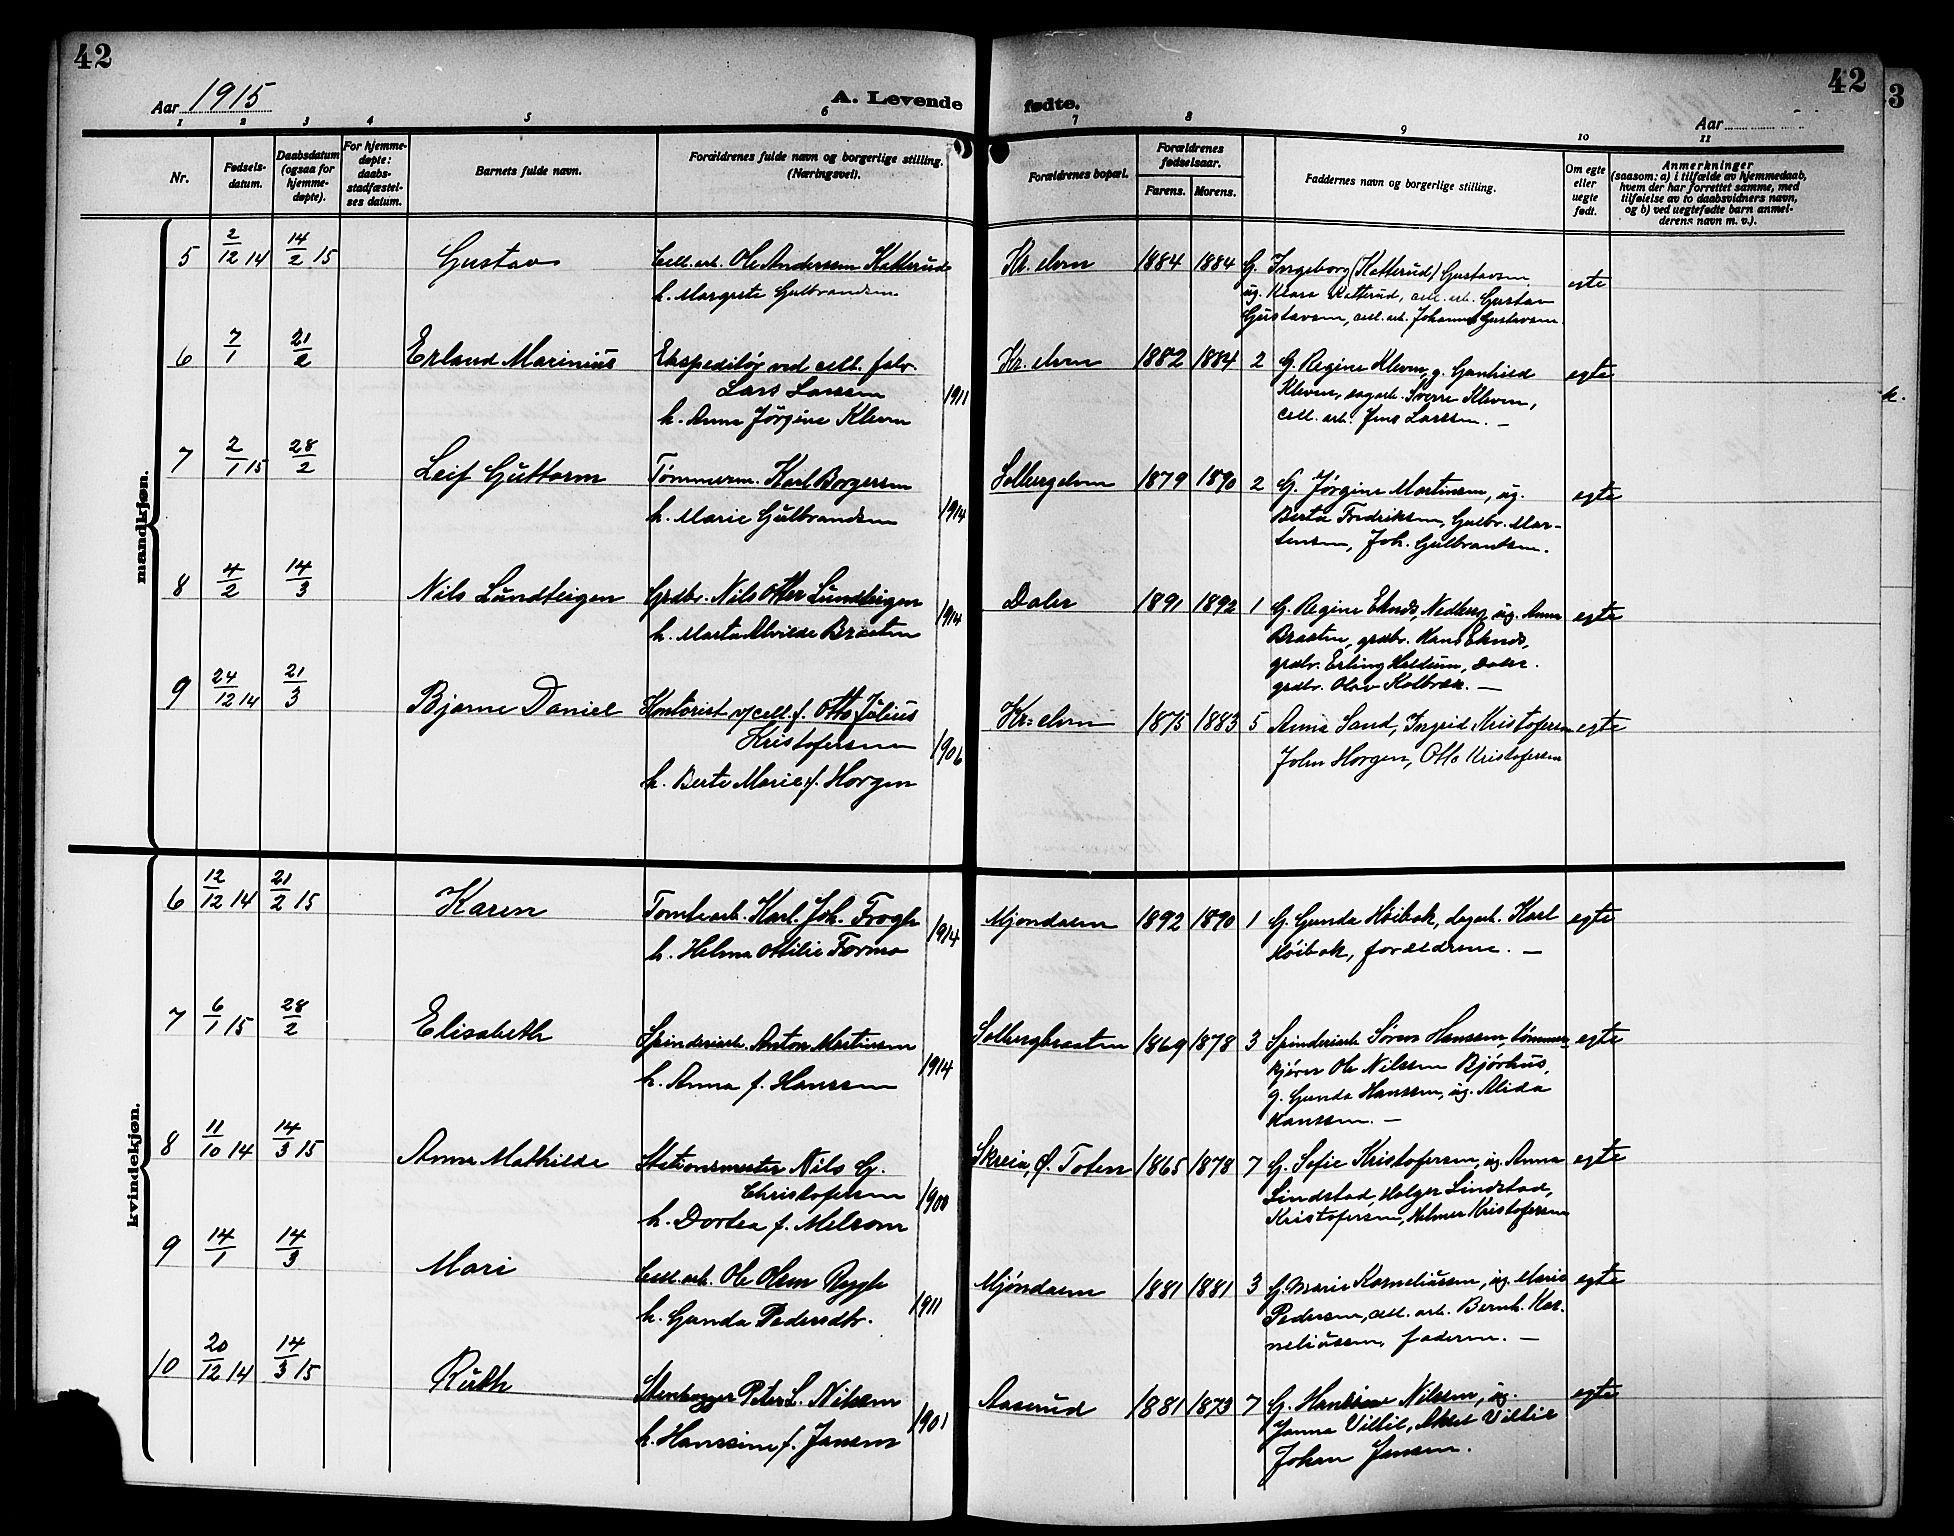 42
Aar 1915
A. Levende
1 2 3 4 5 6
Nr.
Fødsels-
datum.
Daabsdatum
(ogsaa for
hjemme-
døpte).
For hjemme-
døpte:
daabs-
stadfæstel-
ses datum.
Barnets fulde navn.
Forældrenes fulde navn og borgerlige stilling.
(Næringsvei).
mandkjøn.
5 2/12 14 14/2 15 Gustav Cell. arb. Ole Anderssen Katterud
h. Margrete Gulbrandsen
6 7/1 21/2 Erland Marinius Ekspeditør ved cell. fabr.
Lars Larssen 1911
h. Anna Jørgine Kleven
7 2/1 15 28/2 Leif Guttorm Tømmerm. Karl Borgersen
h. Marie Gulbrandsen 1914
8 4/2 14/3 Nils Lundteigen Grdbr. Nils Otter Lundteigen 1914
h. Marta Alvilde Braaten
9 24/12 14 21/3 Bjarne Daniel Kontorist v/cell. f. Otto Julius
Kristofersen 1906
h. Berte Marie f. Horgen
kvindekjøn.
6 12/12 14 21/2 15 Karen Tomtearb. Karl Joh. Frogh 1914
h. Helma Ottilie Formo
7 6/1 15 28/2 Elisabeth Spinderiarb. Anton Martinsen
h. Anna f. Hanssen 1914
8 11/10 14 14/3 15 Anna Mathilde Stationsmester Nils G.
Christofersen 1900
h. Dortea f. Melsom
9 14/1 14/3 Mari Cell. arb. Ole Olsen Rygh
h. Gunda Pedersdtr. 1911
10 20/12 14 14/3 15 Ruth Stenhugger Peter L. Nilssen
h. Hanssine f. Jansen 1901
42
3
fødte.
Aar
7 8 9 10 11
Forældrenes bopæl.
Forældrenes
fødselsaar.
Farens. Morens.
Faddernes navn og borgerlige stilling.
Om egte
eller
uegte
født.
Anmerkninger
(saasom: a) i tilfælde av hjemmedaab,
hvem der har forrettet samme, med
tilføielse av to daabsvidners navn,
og b) ved uegtefødte barn anmel-
derens navn m. v.).
Kr. elven 1884 1884 G. Ingeborg (Katterud) Gustavsen egte
ug. Klara Katterud, cell. arb. Gustav
Gustavsen, cell. arb. Johannes Gustavsen.
Kr. elven 1882 1884 2 G. Regine Kleven, g. Gunhild egte
Kleven, sagarb. Sverre Kleven,
cell. arb. Jens Larssen. —
Solbergelven 1879 1890 2 G. Jørgine Martinsen, ug. egte
Berta Fredriksen, Gulbr. Mar-
tinsen, Joh. Gulbrandsen.
Daler 1891 1892 1 G. Regine Eknes, Nedberg, ug. Anna egte
Braaten, grdbr. Hans Eknes,
grdbr. Erling Hesum, Daler.
grdbr. Olav Kolbræk. —
Kr. elven 1875 1883 5 Anna Sand, Ingrid Kristofersen egte
John Horgen, Otto Kristofersen
Mjøndalen 1892 1890 1 G. Gunda Høibak, dagarb. Karl egte
Høibak, forældrene. —
Solbergbraaten 1869 1878 3 Spinderiarb. Søren Hanssen, tømmer- egte
kjører Ole Nilssen Bjørhus,
g. Gunda Hanssen, ug. Alida
Hanssen. —
Skreia, Ø. Toten 1865 1878 7 G. Sofie Kristofersen, ug. Anna egte
Lindstad, Holger Lindstad,
Kristofersen, Helmer Kristofersen
Mjøndalen 1881 1881 3 G. Marie Korneliussen, ug. Maria egte
Pedersen, cell. arb. Bernh. Kor-
neliussen, faderen. —
Aaserud 1881 1873 7 G. Hanssine Nilssen, ug. egte
Janna Villie, Aksel Villie
Johan Jansen.